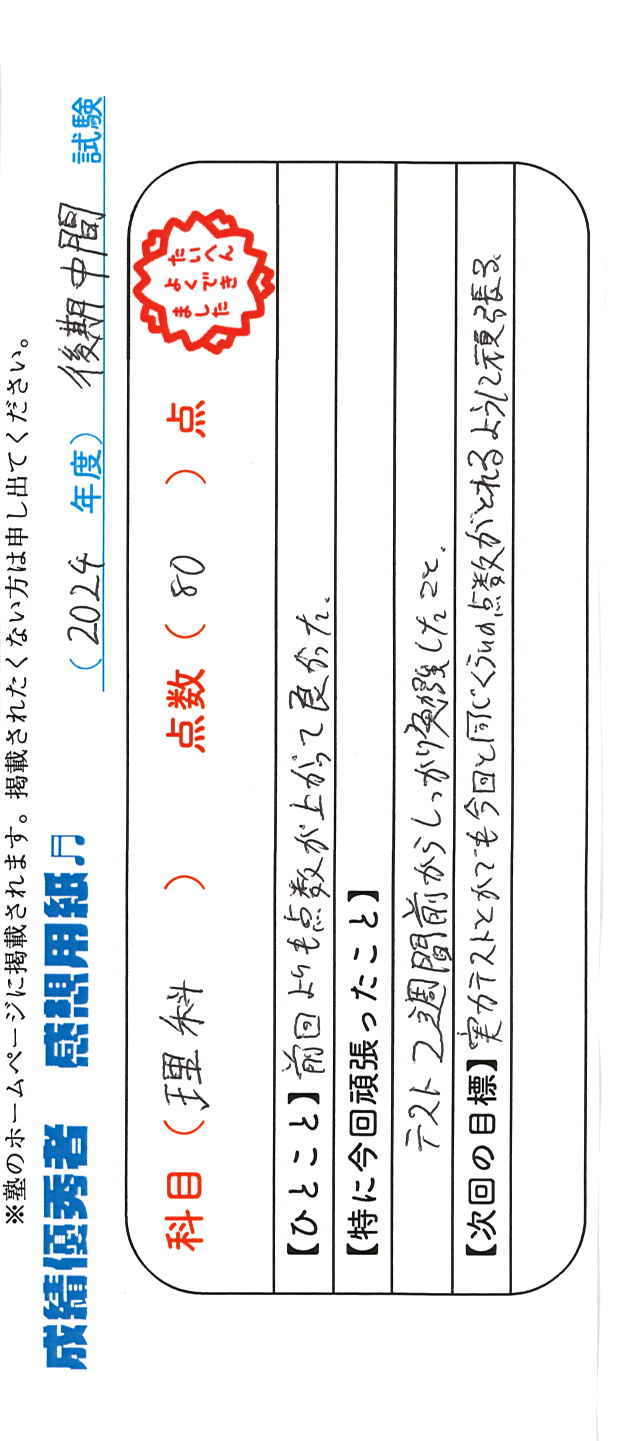 ※塾のホームページに掲載されます。掲載されたくない方は申し出てください。
成績優秀者 感想用紙♬ (2024 年度) 後期中間 試験
科目(理科) 点数(80)点
たいへん
よくでき
ました
【ひとこと】前回よりも点数が上がって良かった。
【特に今回頑張ったこと】
テスト2週間前からしっかり勉強したこと。
【次回の目標】実力テストとかでも今回と同じくらいの点数がとれるように頑張る。